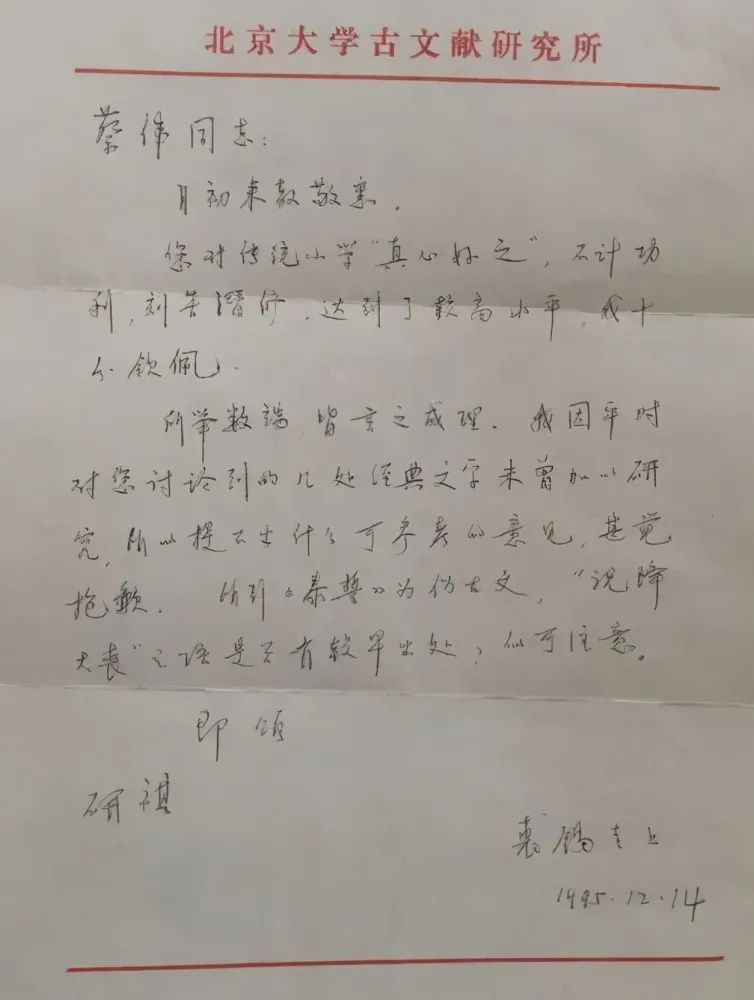 北京大学古文献研究所
蔡伟同志：
月初来教敬悉。
您对传统小学“真心好之”，不计功
利，刻苦潜修，达到了较高水平，我十
分钦佩。
所举数端，皆言之成理。我因平时
对您讨论到的几处经典文字未曾加以研
究，所以提不出什么可参考的意见，甚觉
抱歉。所引《泰誓》为伪古文，“祝降
大丧”之语是否有较早出处，似可注意。
即颂
研祺
裘锡圭上
1995.12.14